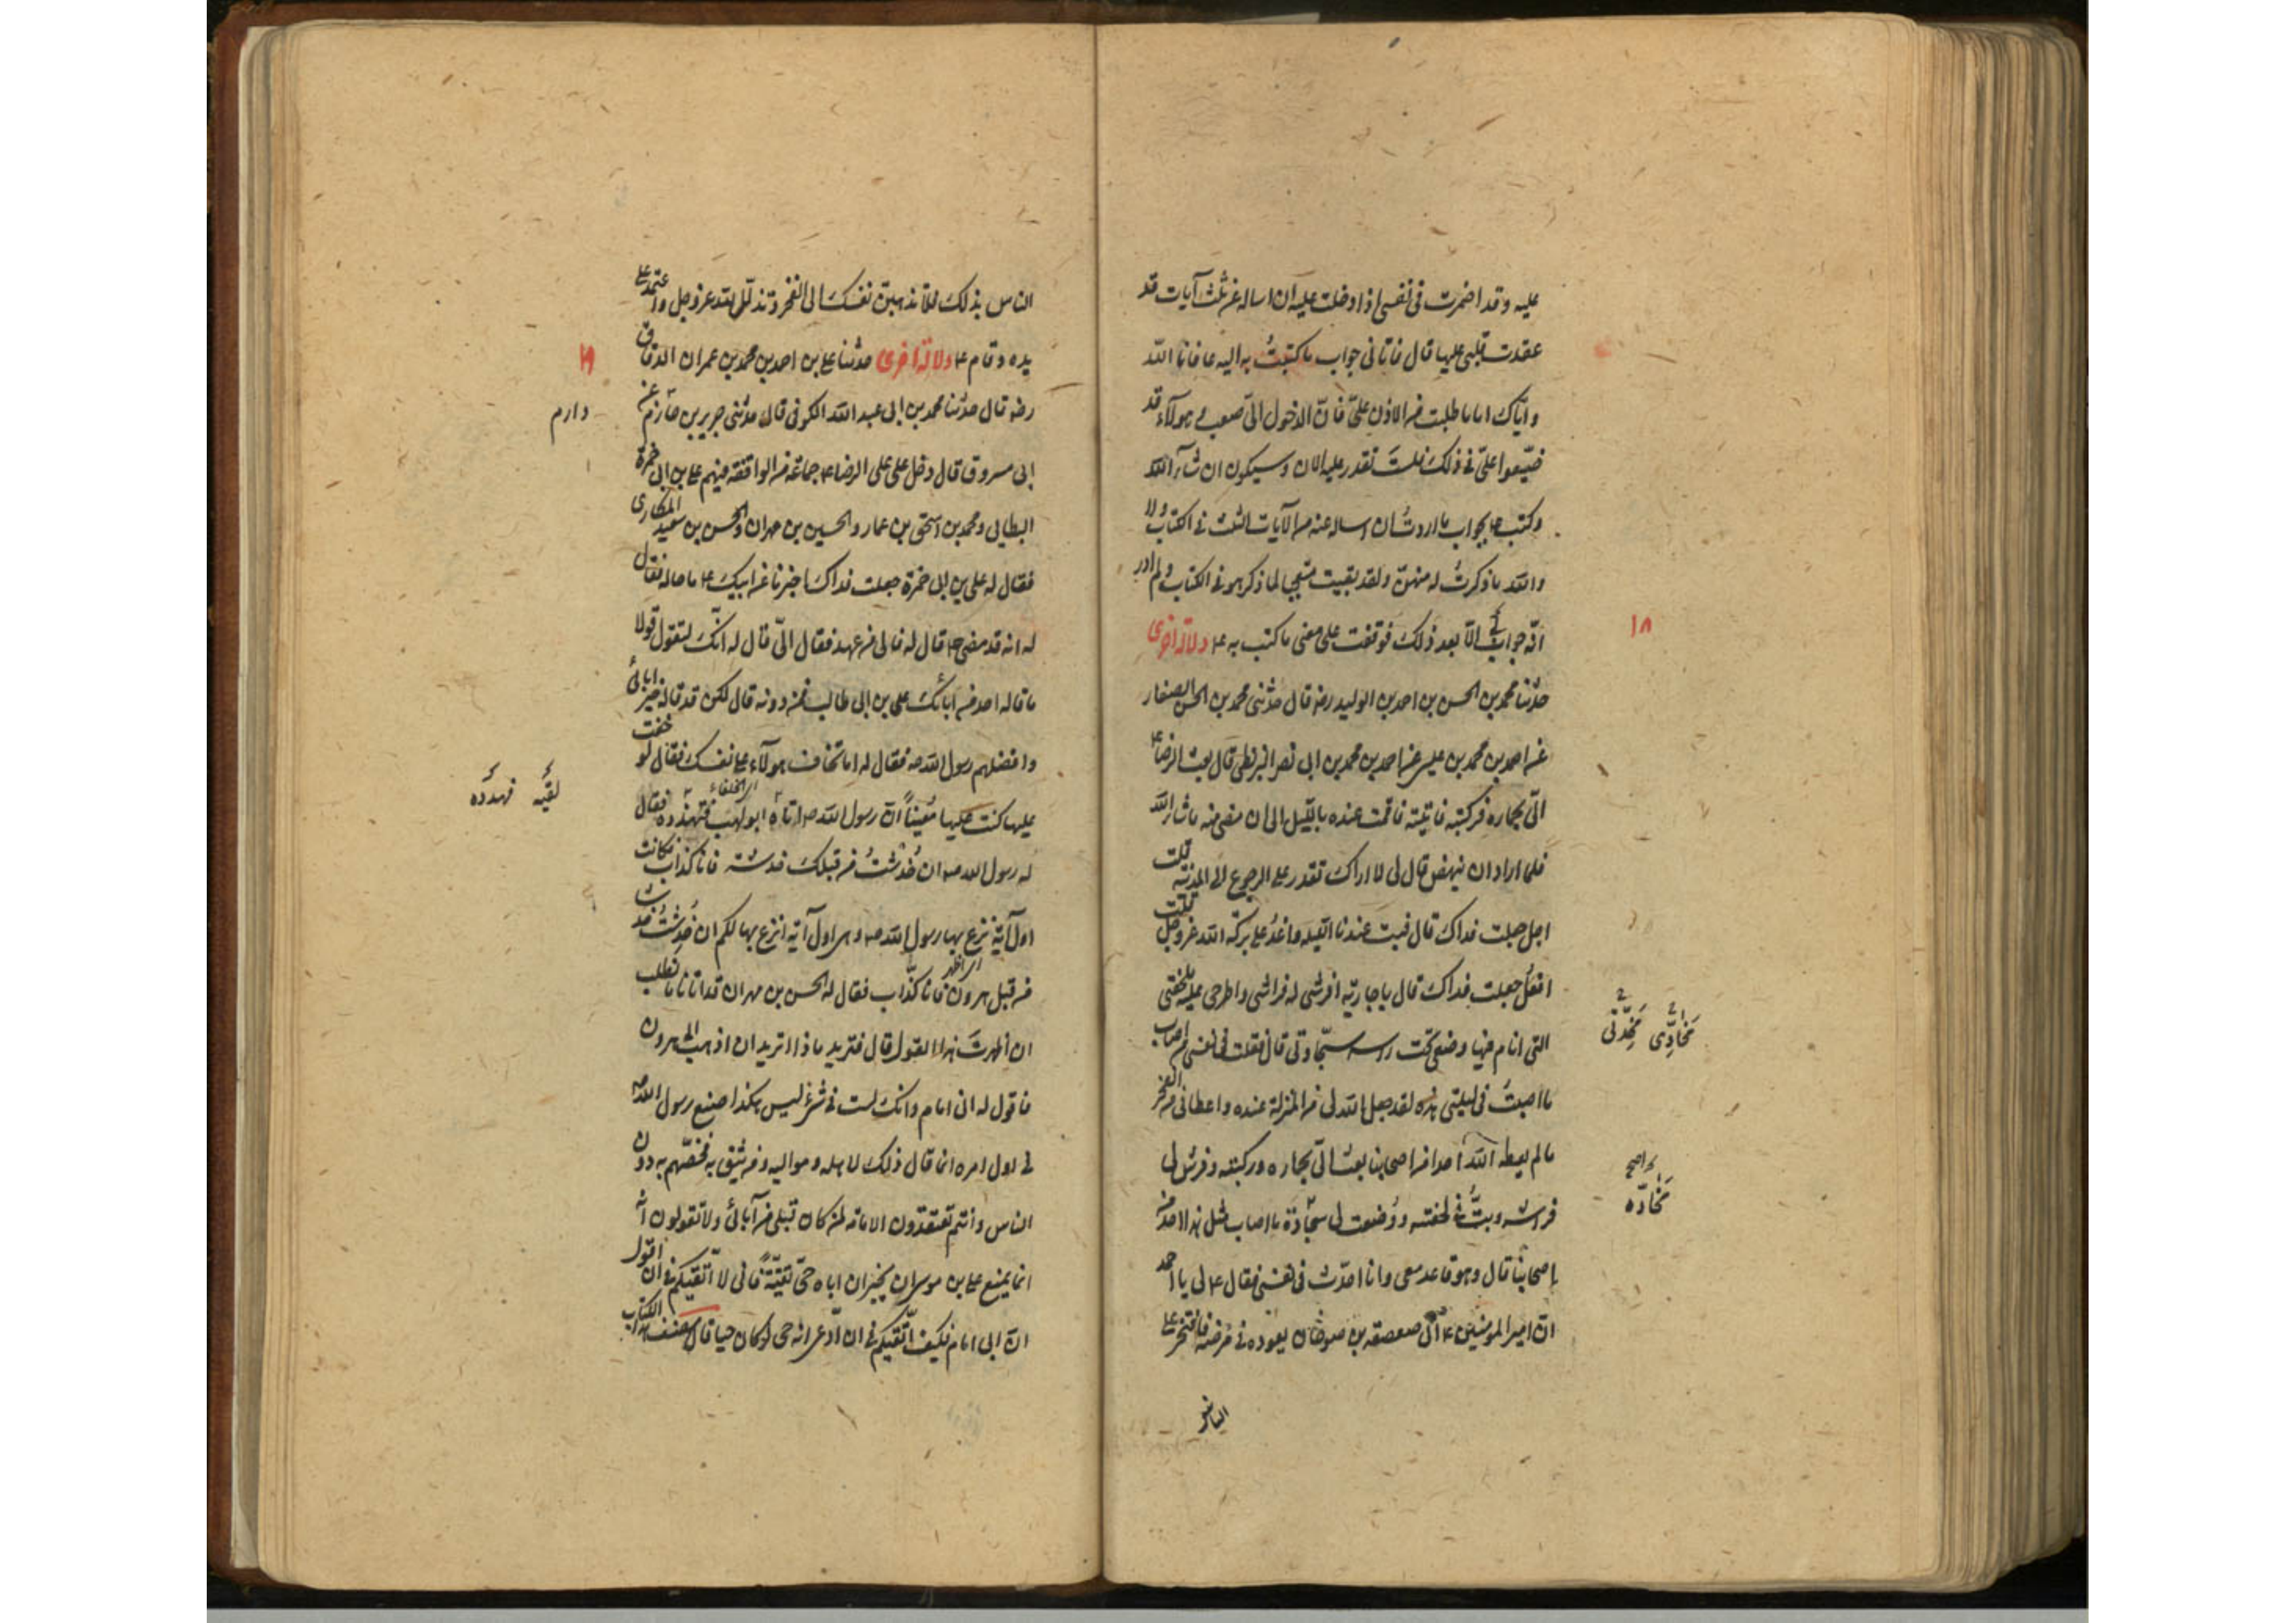 عليه وقد اضمرت في نفسي اذا دخلت عليه ان اساله عن ثلث آيات قد
عقدت قلبي عليها قال فاتاني جواب ما كتبتُ به اليه عافانا الله
واياك اما ما طلبت من الاذن عليّ فانّ الدخول اليّ صعب وهولاء قد
ضيّعوا عليّ في ذلك فلستَ تقدر عليه الان وسيكون ان شاء الله
وكتب ع بجواب ما اردتُ ان اساله عنه من الآيات الثلث في الكتاب ولا
والله ما ذكرتُ له منهنّ ولقد بقيت متعجبا لما ذكر هو في الكتاب ولم ادر
انّه جوابي الّا بعد ذلك فوقفت على معنى ما كتب به ع دلالة اخرى
١٨
حدثنا محمد بن الحسن بن احمد بن الوليد رضه قال حدثني محمد بن الحسن الصفار
عن احمد بن محمد بن عيسى عن احمد بن محمد بن ابي نصر البزنطي قال بعث الرضا ع
اليّ بحماره فركبته فاتيته فاقمت عنده بالليل الى ان مضى منه ما شاء الله
فلما اراد ان ينهض قال لي لا اراك تقدر على الرجوع الى المدينة قلت
اجل جعلت فداك قال فبت عندنا الليلة واغدُ على بركة الله عز وجل قلت
افعل جعلت فداك قال يا جارية افرشي له فراشي واطرحي عليه ملحفتي
التي انام فيها وضعي تحت راسه سجّادتي قال فقلت في نفسي من اصاب
مخادّي مخدّتي
ما اصبتُ في ليلتي هذه لقد جعل الله لي من المنزلة عنده واعطاني من الفخر
ما لم يعطه الله احدا من اصحابنا بعث اليّ بحماره وركبته وفرش لي
فراشه وبتُّ في لحفته ووُضعت لي سجّادة ما اصاب مثل هذا احد من
مخادّه
اصحابنا قال وهو قاعد معي وانا احدّث في نفسي فقال ع لي يا احمد
انّ امير المومنين ع اتى صعصعة بن صوحان يعوده في مرضه فافتخر على
الناس
الناس بذلك فلا تذهبنّ نفسك الى الفخر وتذلّل لله عز وجل واعتمد على
يده وقام ع دلالة اخرى حدثنا علي بن احمد بن محمد بن عمران الدقاق
رضه قال حدثنا محمد بن ابي عبد الله الكوفي قال حدثني جرير بن حازم عن
دارم
ابي مسروق قال دخل على على الرضا ع جماعة من الواقفة فيهم علي بن ابي حمزة
البطايني ومحمد بن اسحق بن عمار والحسين بن مهران والحسن بن سعيد المكاري
فقال له علي بن ابي حمزة جعلت فداك اخبرنا عن ابيك ع ما حاله فقال
له انه قد مضى ع قال له فالى من عهد فقال اليّ قال له انّك لتقول قولا
ما قاله احد من ابائك علي بن ابي طالب فمن دونه قال لكن قد قاله خير ابائي
وافضلهم رسول الله صه فقال له اما تخاف هولاء على نفسك فقال لو خفت
عليها كنت عليها مُعيناً انّ رسول الله صه اتاه ابو لهب فتهدده فقال
له رسول الله صه ان خُدشتُ من قبلك خدشة فانا كذاب فكانت
اول آية نزع بها رسول الله صه وهي اول آية انزع بها لكم ان خُدشتُ خدشا
من قبل هرون فانا كذّاب فقال له الحسن بن مهران قد اتانا ما نطلب
ان اظهرتَ هذا القول قال فتريد ماذا اتريد ان اذهب الى هرون
فاقول له اني امام وانك لست في شئ ليس هكذا صنع رسول الله صه
في اول امره انما قال ذلك لاهله ومواليه ومن يثق به فخصّهم به دون
الناس وانتم تعتقدون الامامة لمن كان قبلي من آبائي ولا تقولون انه
انما يمنع علي بن موسى ان يخبر ان اباه حيّ تقيّةً فاني لا اتّقيكم في ان اقول
انّ ابي امام فكيف اتّقيكم في ان ادّعي انه حي لو كان حيا قال مصنف هذا الكتاب